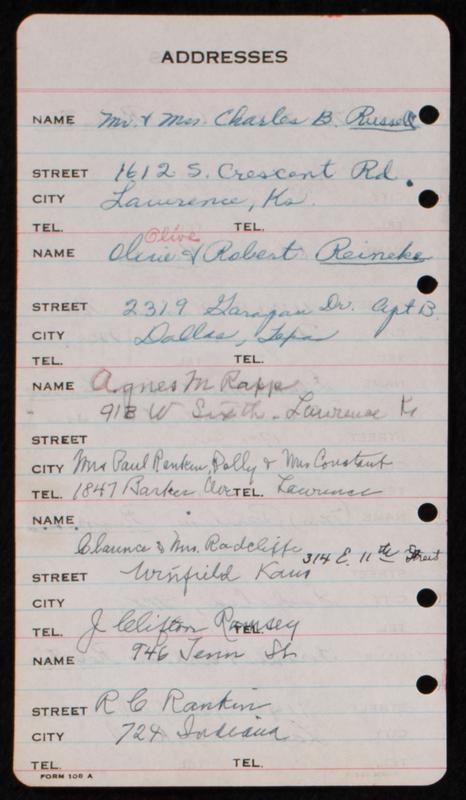 ADDRESSES
NAME Mr. & Mrs. Charles B. Russell
STREET 1612 S. Crescent Rd.
CITY Lawrence, Ks.
TEL. TEL.
Olive
NAME Olive & Robert Reineke
STREET 2319 Dr. Apt B
CITY Dallas, Texas
TEL. TEL.
NAME Agnes M Rapp
918 W Sixth. Lawrence Ks
STREET
CITY Mrs Paul Rankin, Dolly & Mrs Constant
TEL. 1847 Barker Ave TEL. Lawrence
NAME
Clarence & Mrs. Radcliffe
314 E. 11th Street
STREET Winfield Kans
CITY
TEL. J Clifton Ramsey TEL.
NAME 946 Tenn St.
STREET R C Rankin
CITY 724 Indiana
TEL. TEL.
FORM 108 A